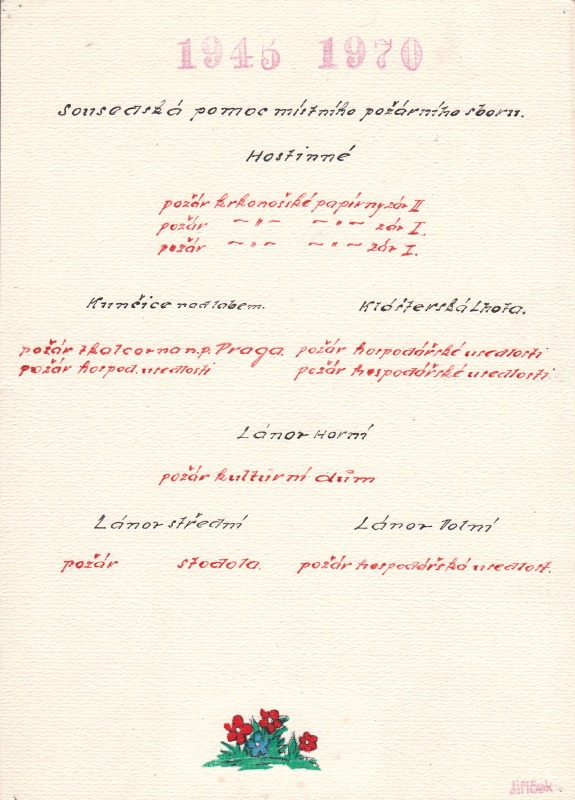 1945 1970
Sousedská pomoc místního požárního sboru.
Hostinné
požár krkonošské papírny záv II
požár — " — — " — záv I.
požár — " — — " — záv I.
Kunčice nad Labem.
Klášterská Lhota.
požár tkalcovna n.p. Praga.
požár hospod. usedlosti
požár hospodářské usedlosti
požár hospodářské usedlosti
Lánov Horní
požár kulturní dům
Lánov střední
Lánov Dolní
požár stodola.
požár hospodářská usedlost.
Jiříček